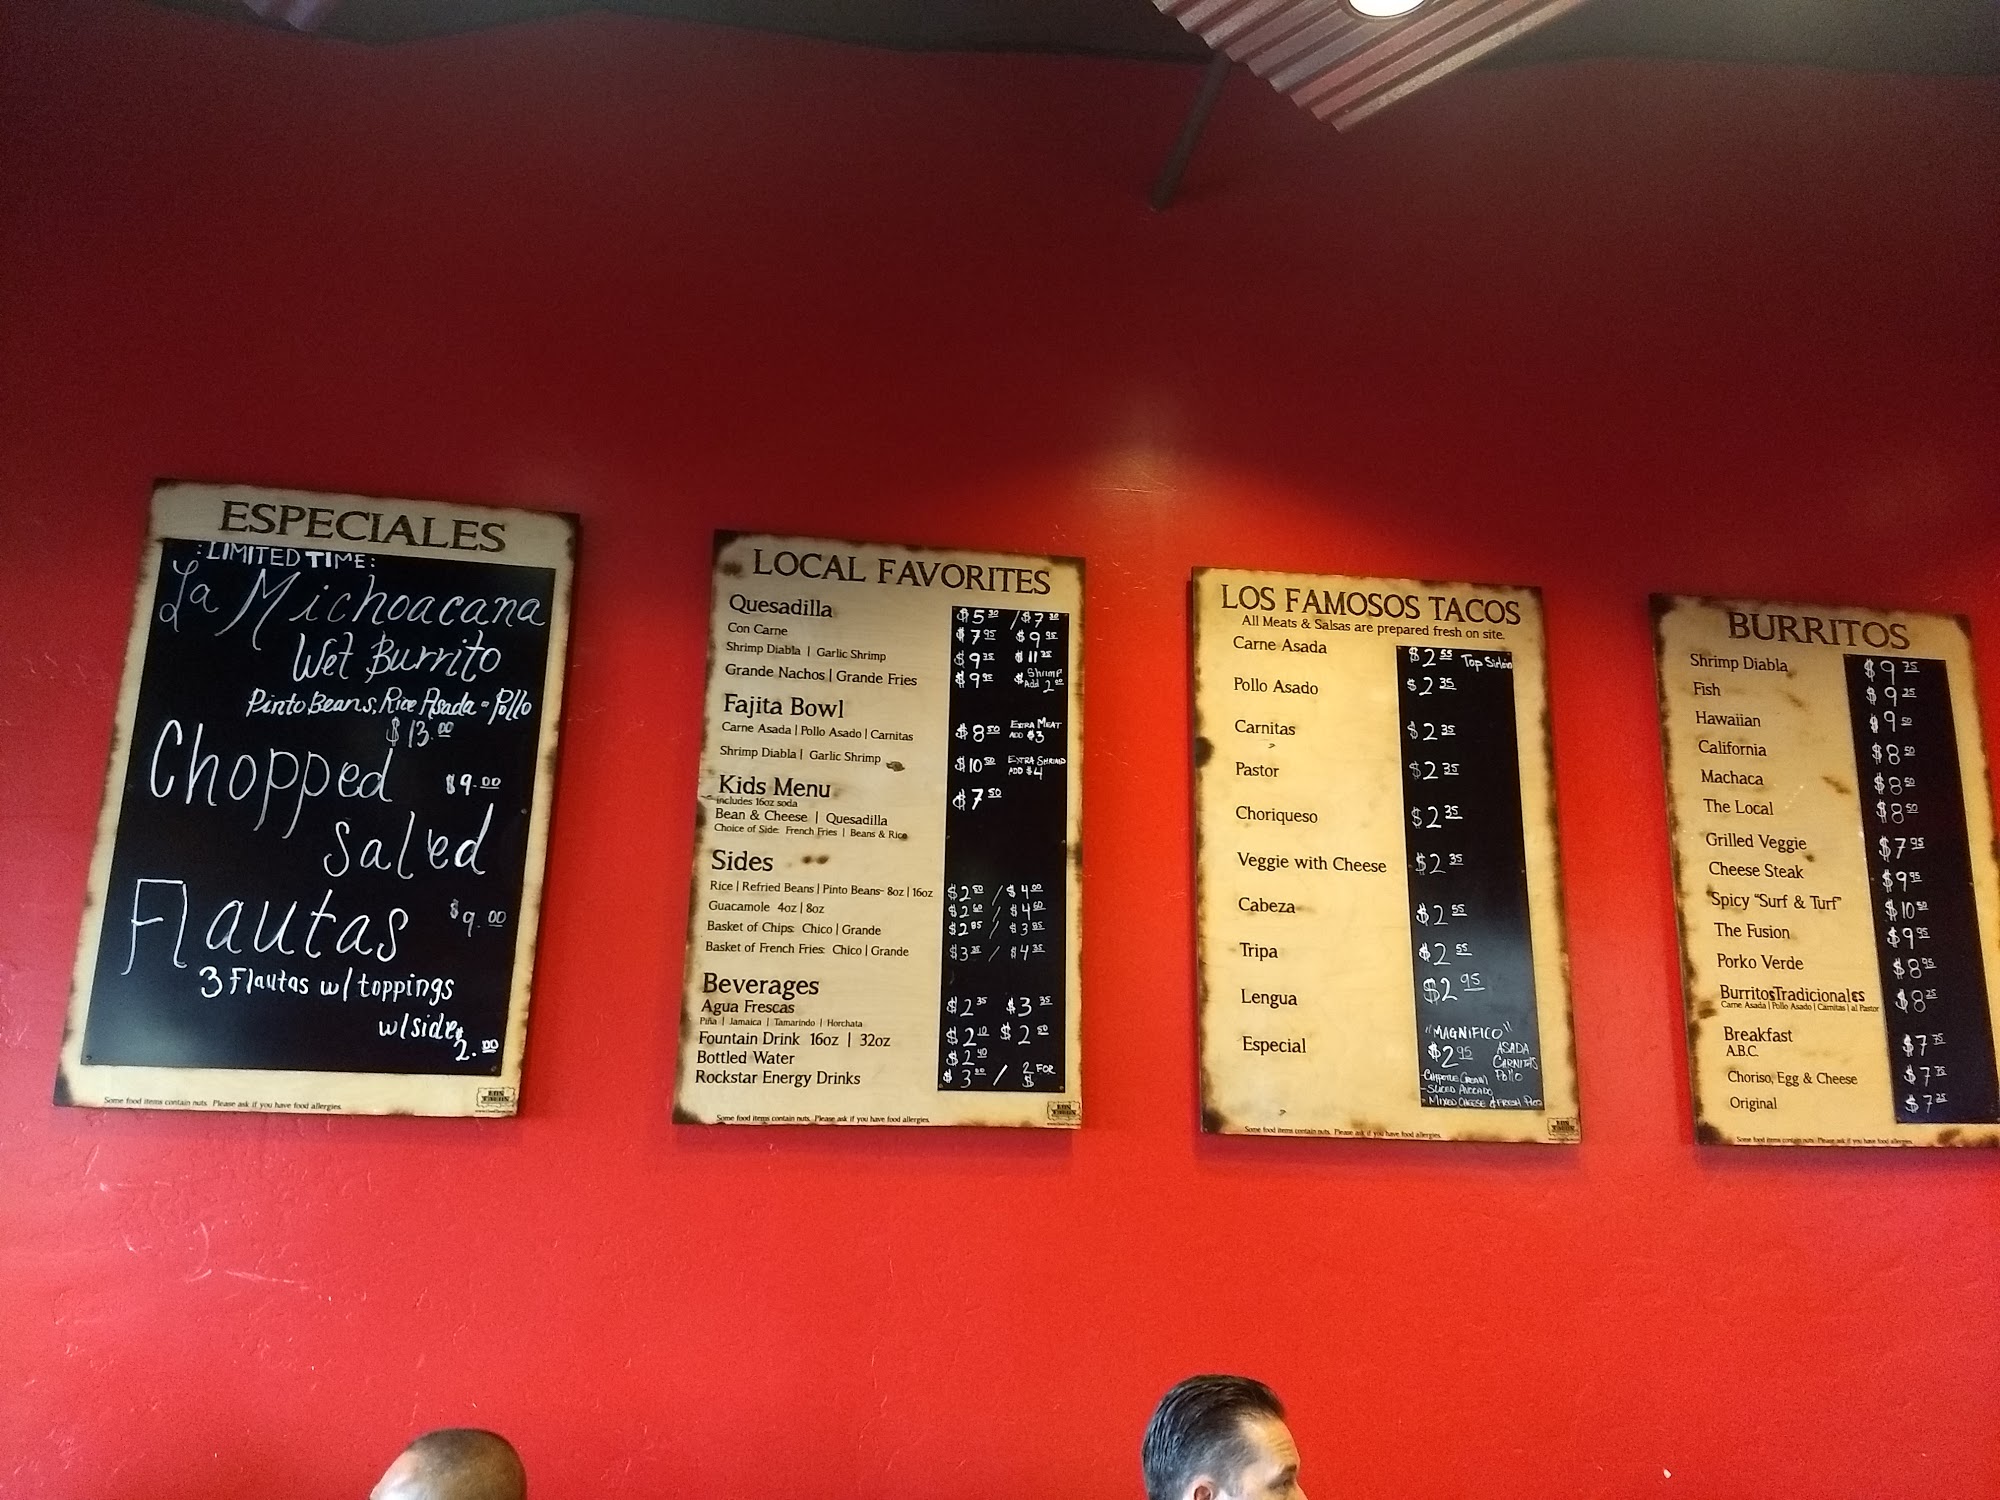 ESPECIALES
:LIMITED TIME:
La Michoacana
Wet Burrito
Pinto Beans, Rice Asada - Pollo
$13.00
Chopped $9.00
Saled
Flautas $9.00
3 Flautas w/ toppings
w/side
2.00
Some food items contain nuts. Please ask if you have food allergies.
LOCAL FAVORITES
Quesadilla $5 / $7
Con Carne $7 95 $9 95
Shrimp Diabla | Garlic Shrimp $9 $11
Grande Nachos | Grande Fries $9 95 $ Shrimp Add 2 00
Fajita Bowl
Carne Asada | Pollo Asado | Carnitas $8 50 EXTRA MEAT ADD $3
Shrimp Diabla | Garlic Shrimp $10 50 EXTRA SHRIMP ADD $4
Kids Menu $7 50
includes 16oz soda
Bean & Cheese | Quesadilla
Choice of Side: French Fries | Beans & Rice
Sides
Rice | Refried Beans | Pinto Beans- 8oz | 16oz $2 50 / $4 00
Guacamole 4oz | 8oz $2 / $4
Basket of Chips: Chico | Grande $2 / $3
Basket of French Fries: Chico | Grande $3 / $4
Beverages
Agua Frescas $2 35 $3 35
Piña | Jamaica | Tamarindo | Horchata
Fountain Drink 16oz | 32oz $2 10 $2 50
Bottled Water $2
Rockstar Energy Drinks $3 00 / 2 FOR $
Some food items contain nuts. Please ask if you have food allergies.
LOS FAMOSOS TACOS
All Meats & Salsas are prepared fresh on site.
Carne Asada $2 55 Top Sirloin
Pollo Asado $2 35
Carnitas $2 35
Pastor $2 35
Choriqueso $2 35
Veggie with Cheese $2 35
Cabeza $2 55
Tripa $2 55
Lengua $2 95
Especial "MAGNIFICO"
$2 95 ASADA
CARNITAS
POLLO
- CHIPOTLE CREAM
- SLICED AVOCADO
- MIXED CHEESE & FRESH PICO
Some food items contain nuts. Please ask if you have food allergies.
BURRITOS
Shrimp Diabla $9 75
Fish $9 25
Hawaiian $9 50
California $8 50
Machaca $8 50
The Local $8 50
Grilled Veggie $7 95
Cheese Steak $9 95
Spicy "Surf & Turf" $10 50
The Fusion $9 95
Porko Verde $8 95
BurritosTradicionales $8 25
Carne Asada | Pollo Asado | Carnitas | al Pastor
Breakfast
A.B.C. $7 75
Choriso, Egg & Cheese $7 75
Original $7 25
Some food items contain nuts. Please ask if you have food allergies.